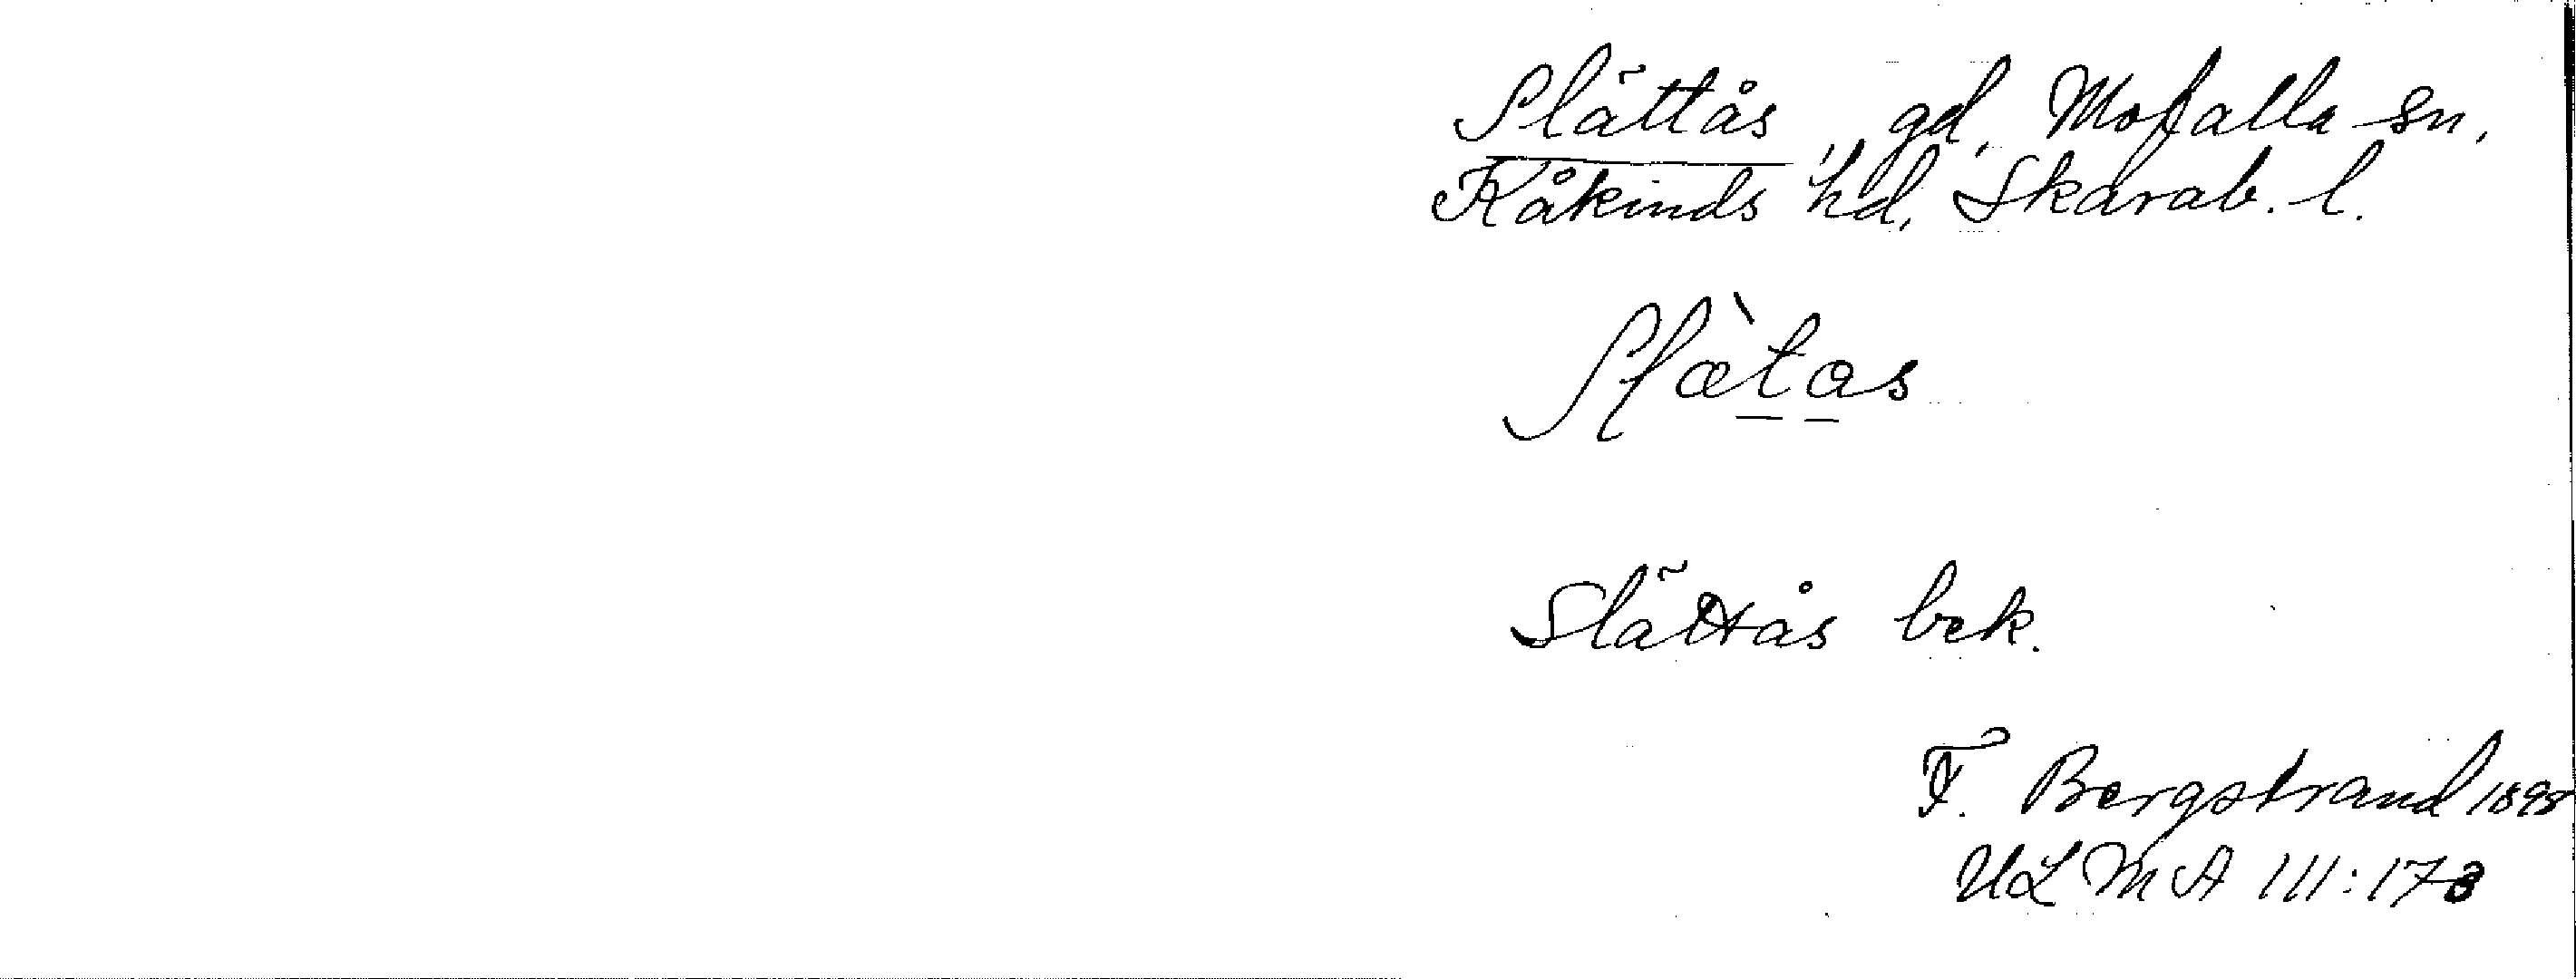 Slättås, gd, Mofalla sn,
Kåkinds hd, Skarab. l.
Slæ̀tas
Slättås bek.
F. Bergstrand 1898
ULMA 111:173